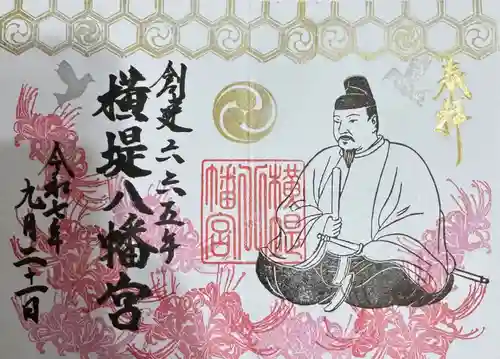 創建六六五年
横堤八幡宮
令和七年
九月二十一日
横堤
八
幡宮